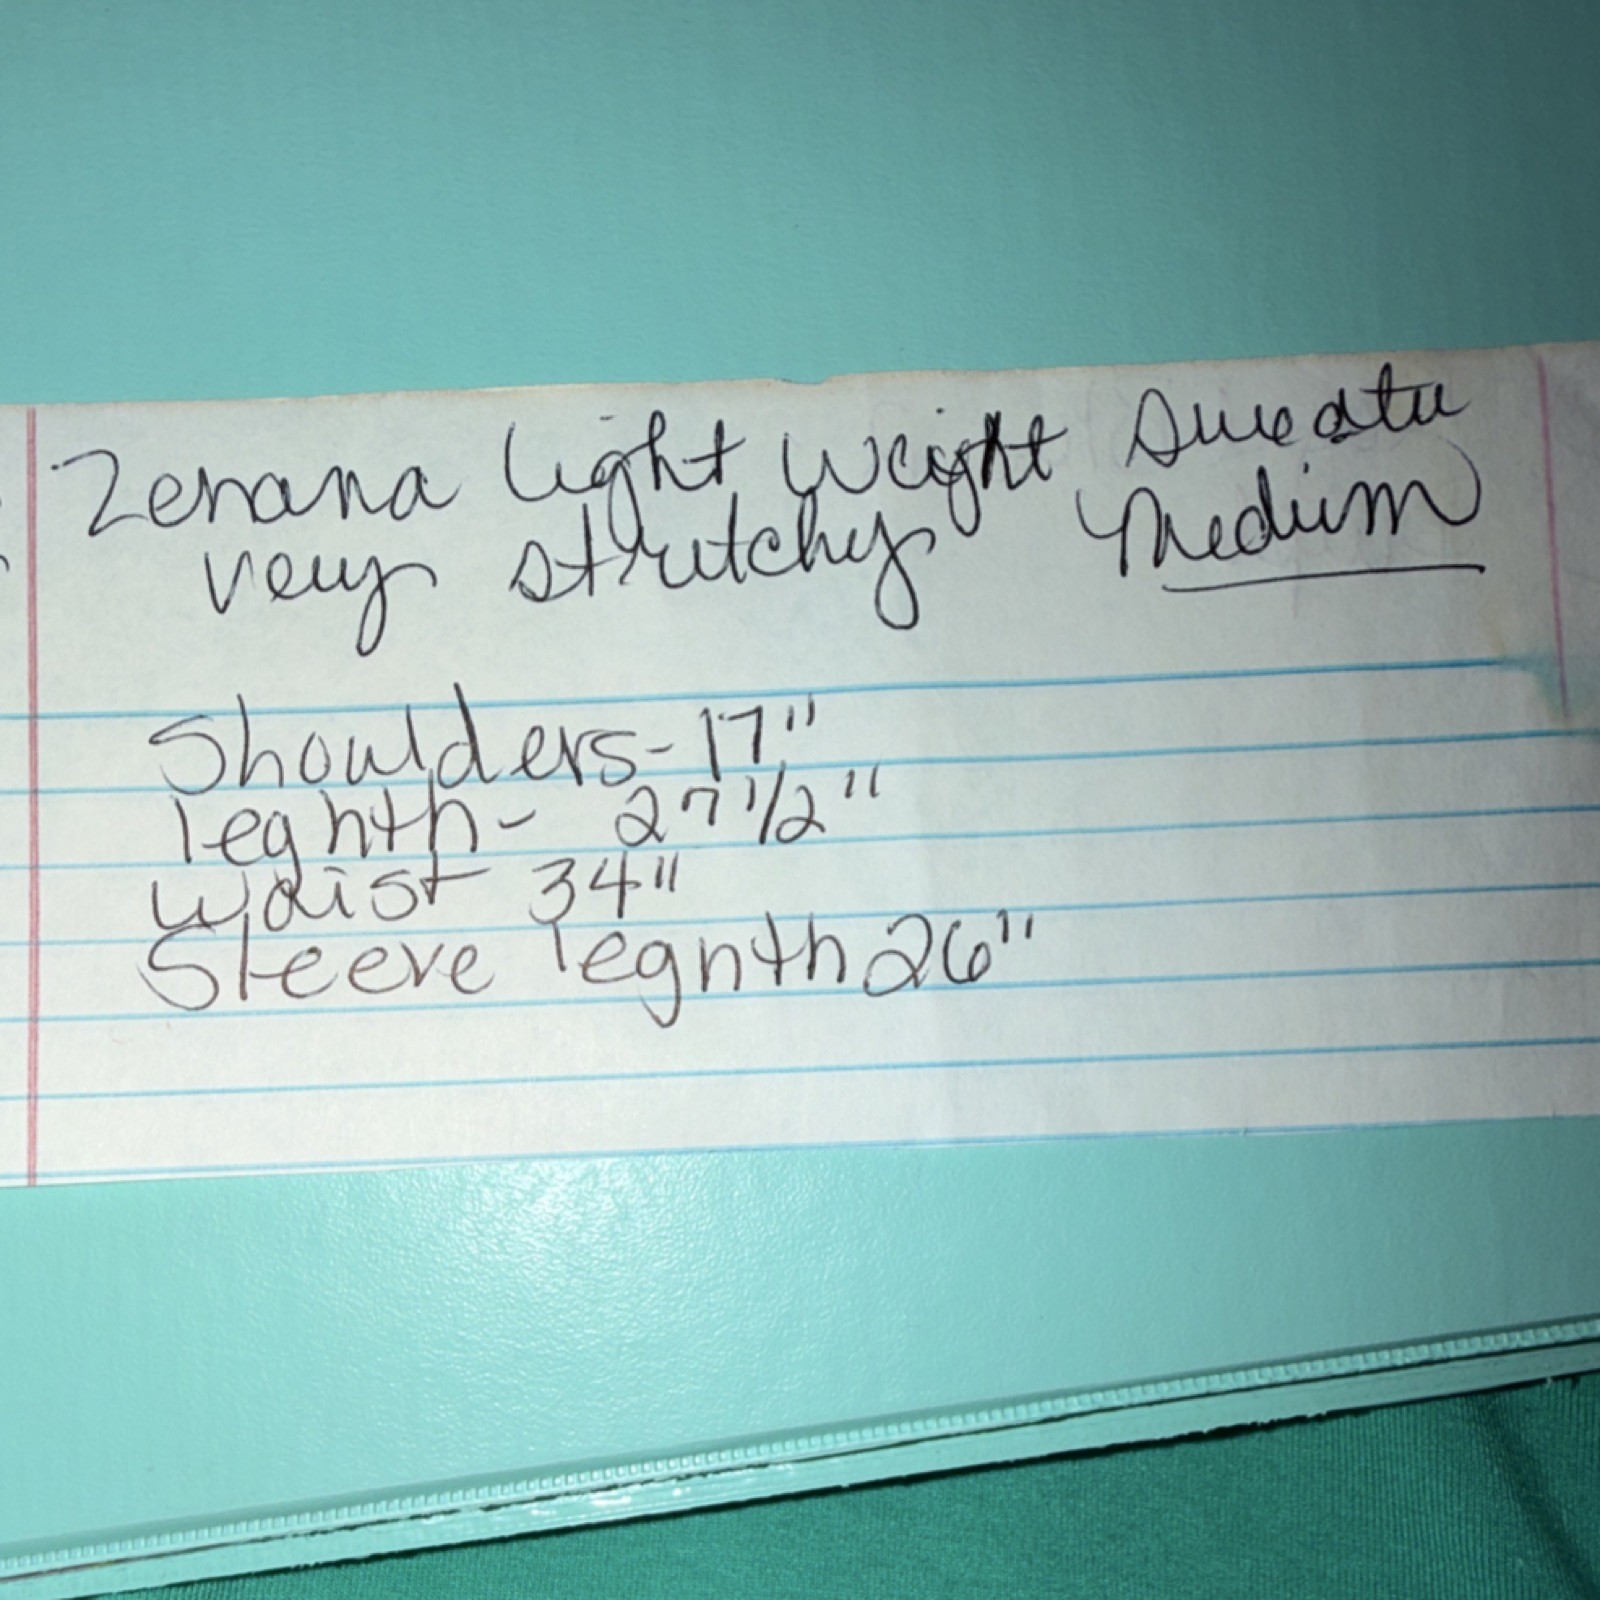 Zenana light weight Sweater
very stretchy Medium
Shoulders-17"
leghth- 27 1/2"
waist 34"
Sleeve legnth 26"